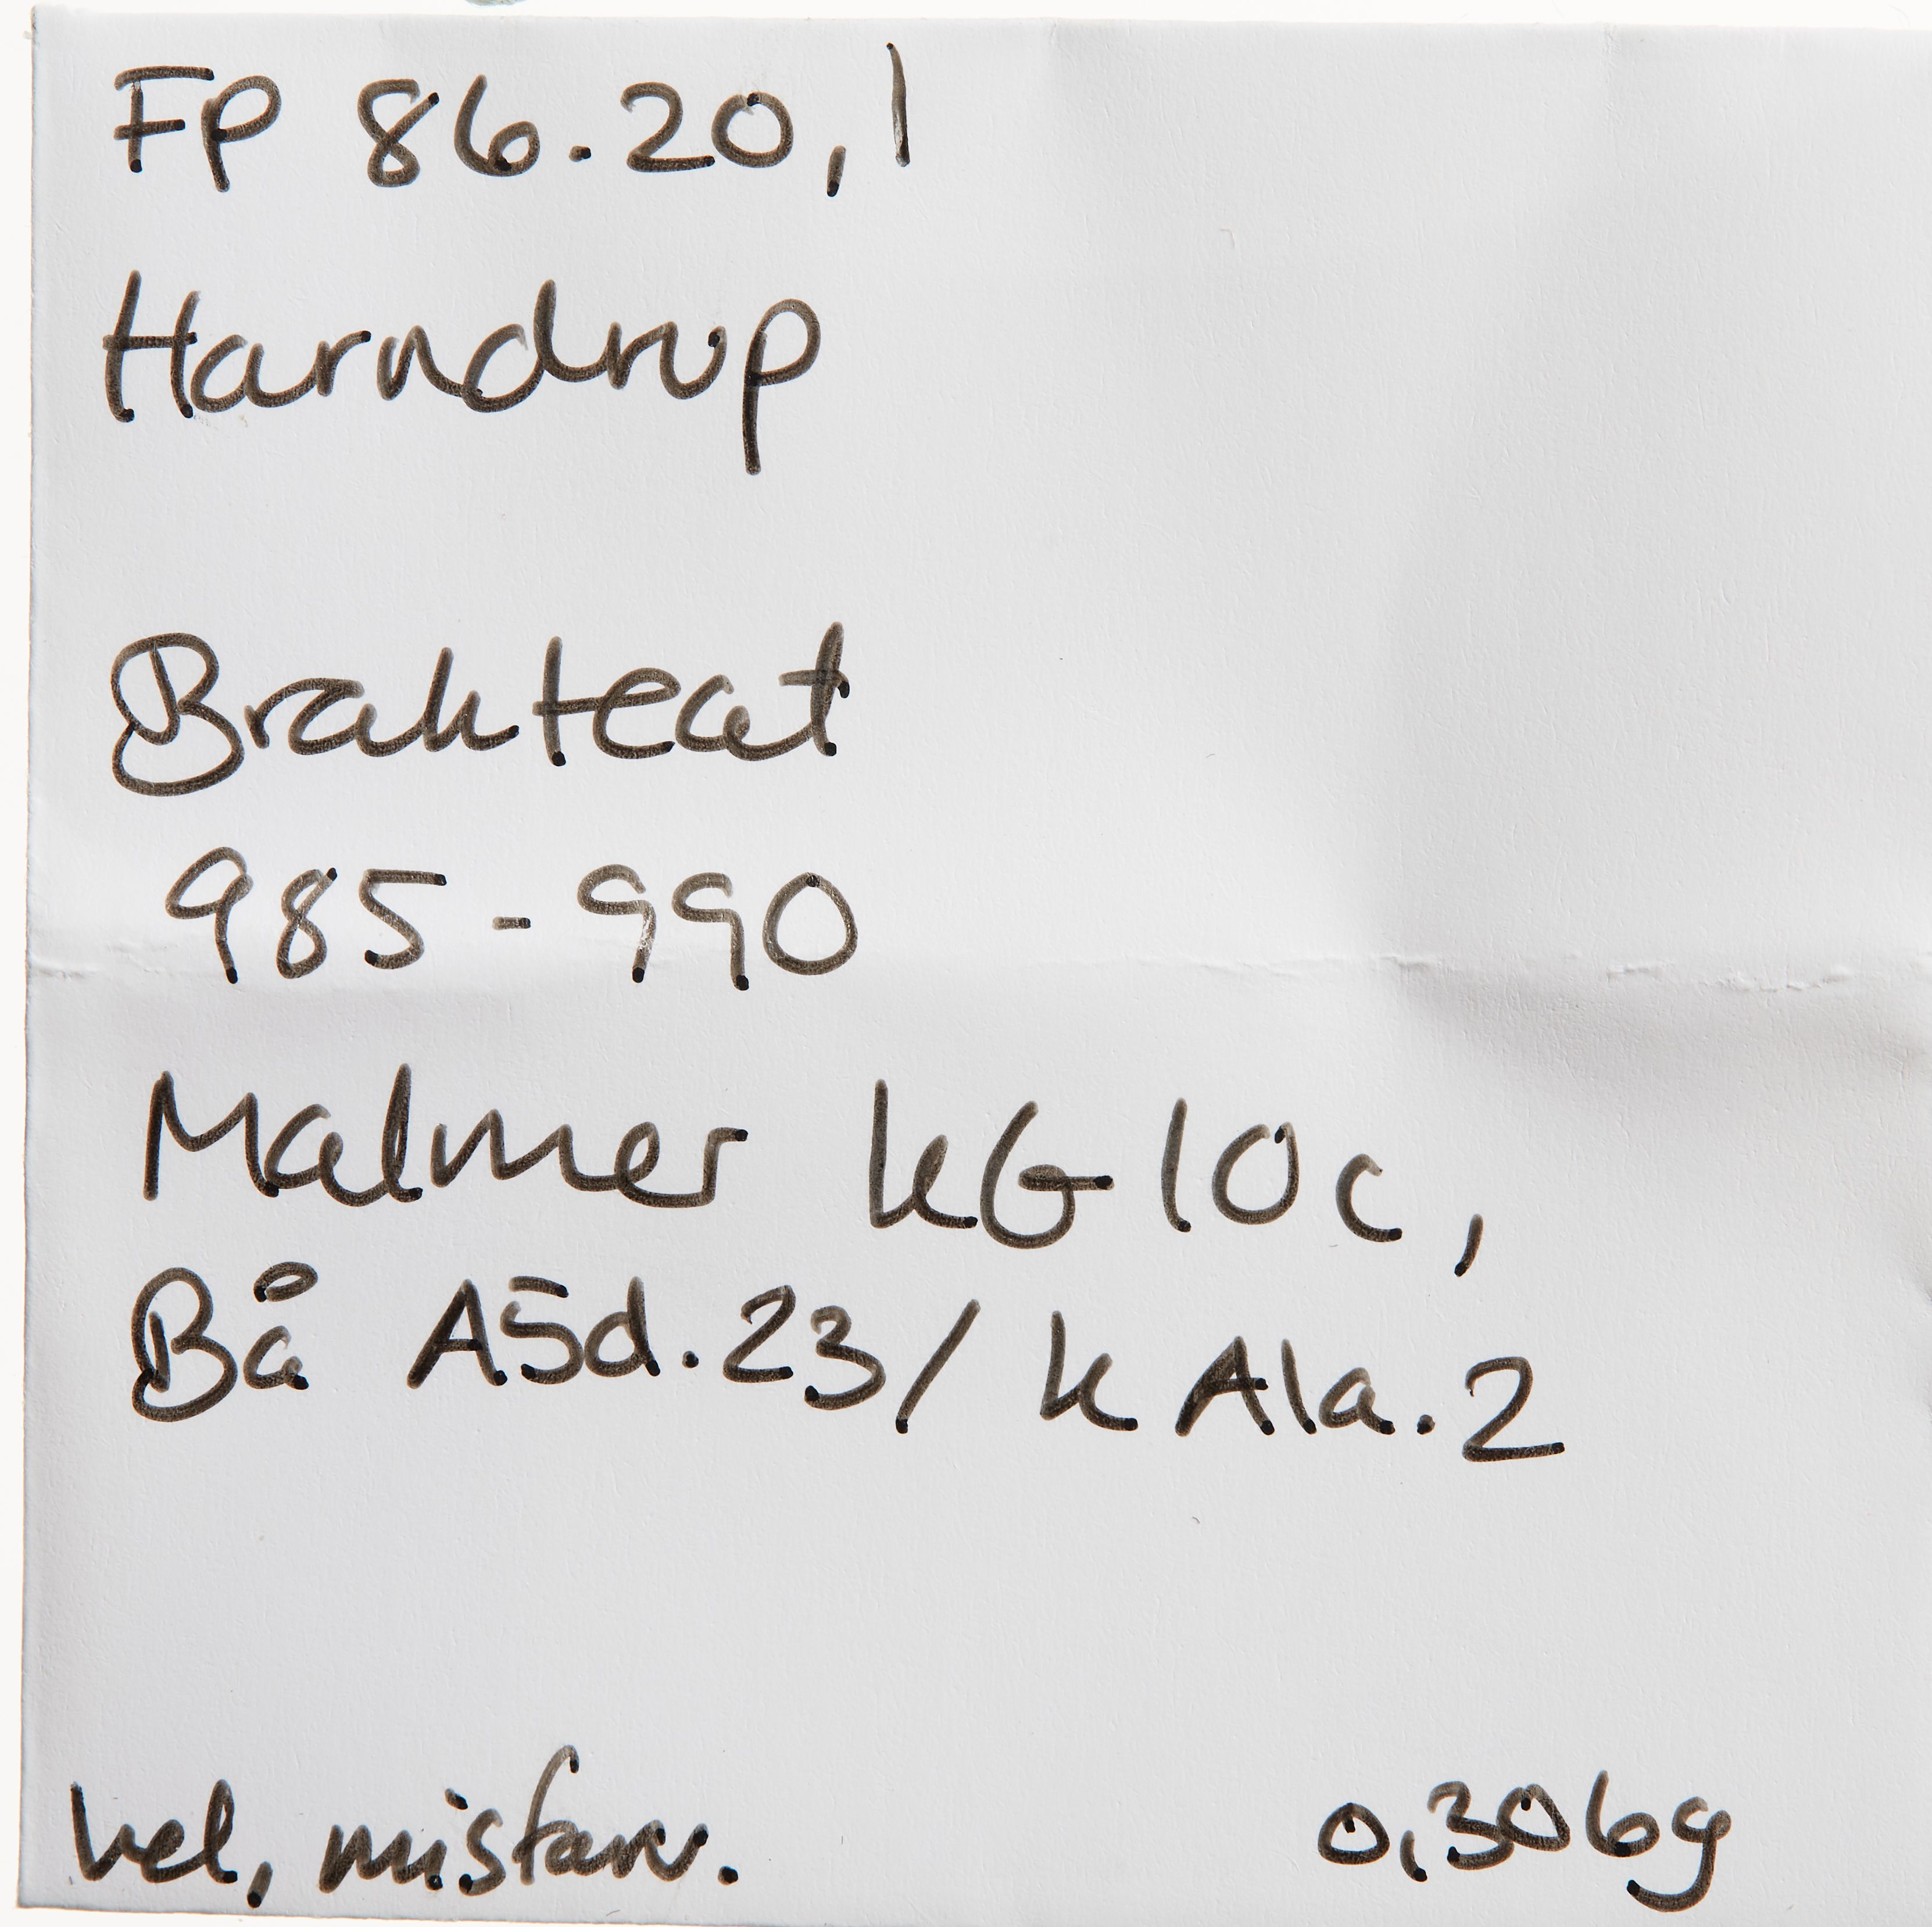 FP 86.20,1
Harndrup
Brakteat
985-990
Malmer KG 10c,
Bå A5d.23/ K A1a.2
hel, misfarv.
0,306g